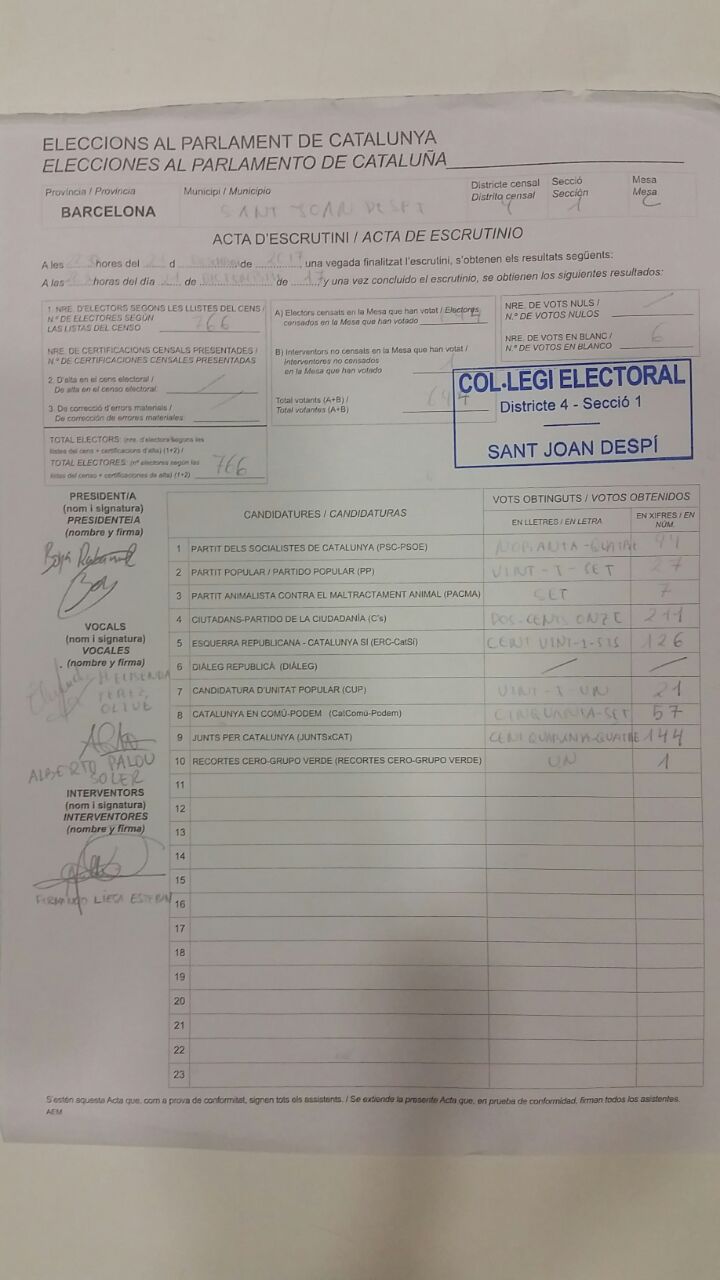 ELECCIONS AL PARLAMENT DE CATALUNYA
ELECCIONES AL PARLAMENTO DE CATALUÑA
Província / Provincia Municipi / Municipio Districte censal Secció Mesa
Distrito censal Sección Mesa
BARCELONA SANT JOAN DESPÍ 4 1 C
ACTA D'ESCRUTINI / ACTA DE ESCRUTINIO
A les hores del d de 2017, una vegada finalitzat l'escrutini, s'obtenen els resultats següents:
A las horas del día 21 de DICIEMBRE de 17 y una vez concluido el escrutinio, se obtienen los siguientes resultados:
1. NRE. D'ELECTORS SEGONS LES LLISTES DEL CENS /
N.º DE ELECTORES SEGÚN
LAS LISTAS DEL CENSO 766
NRE. DE CERTIFICACIONS CENSALS PRESENTADES /
N.º DE CERTIFICACIONES CENSALES PRESENTADAS
2. D'alta en el cens electoral /
De alta en el censo electoral.
3. De correcció d'errors materials /
De corrección de errores materiales:
TOTAL ELECTORS: (nre. d'electors segons les
llistes del cens + certificacions d'alta) (1+2) /
TOTAL ELECTORES: (nº electores según las
listas del censo + certificaciones de alta) (1+2) 766
A) Electors censats en la Mesa que han votat / Electores
censados en la Mesa que han votado
B) Interventors no censats en la Mesa que han votat /
Interventores no censados
en la Mesa que han votado
Total votants (A+B) /
Total votantes (A+B)
NRE. DE VOTS NULS /
N.º DE VOTOS NULOS
NRE. DE VOTS EN BLANC /
N.º DE VOTOS EN BLANCO 6
COL·LEGI ELECTORAL
Districte 4 - Secció 1
SANT JOAN DESPÍ
PRESIDENT/A
(nom i signatura)
PRESIDENTE/A
(nombre y firma)
VOCALS
(nom i signatura)
VOCALES
(nombre y firma)
PEREZ
OLIVE
ALBERTO PALOU
SOLER
INTERVENTORS
(nom i signatura)
INTERVENTORES
(nombre y firma)
FERNANDO LIESA ESTEBAN
CANDIDATURES / CANDIDATURAS VOTS OBTINGUTS / VOTOS OBTENIDOS
EN LLETRES / EN LETRA EN XIFRES / EN NÚM.
1 PARTIT DELS SOCIALISTES DE CATALUNYA (PSC-PSOE) NORANTA-QUATRE 94
2 PARTIT POPULAR / PARTIDO POPULAR (PP) VINT-I-SET 27
3 PARTIT ANIMALISTA CONTRA EL MALTRACTAMENT ANIMAL (PACMA) SET 7
4 CIUTADANS-PARTIDO DE LA CIUDADANÍA (C's) DOS-CENTS ONZE 211
5 ESQUERRA REPUBLICANA - CATALUNYA SI (ERC-CatSí) CENT VINT-I-SIS 126
6 DIÀLEG REPUBLICÀ (DIÀLEG)
7 CANDIDATURA D'UNITAT POPULAR (CUP) VINT-I-UN 21
8 CATALUNYA EN COMÚ-PODEM (CatComú-Podem) CINQUANTA-SET 57
9 JUNTS PER CATALUNYA (JUNTSxCAT) CENT QUARANTA-QUATRE 144
10 RECORTES CERO-GRUPO VERDE (RECORTES CERO-GRUPO VERDE) UN 1
11
12
13
14
15
16
17
18
19
20
21
22
23
S'estén aquesta Acta que, com a prova de conformitat, signen tots els assistents. / Se extiende la presente Acta que, en prueba de conformidad, firman todos los asistentes.
AEM